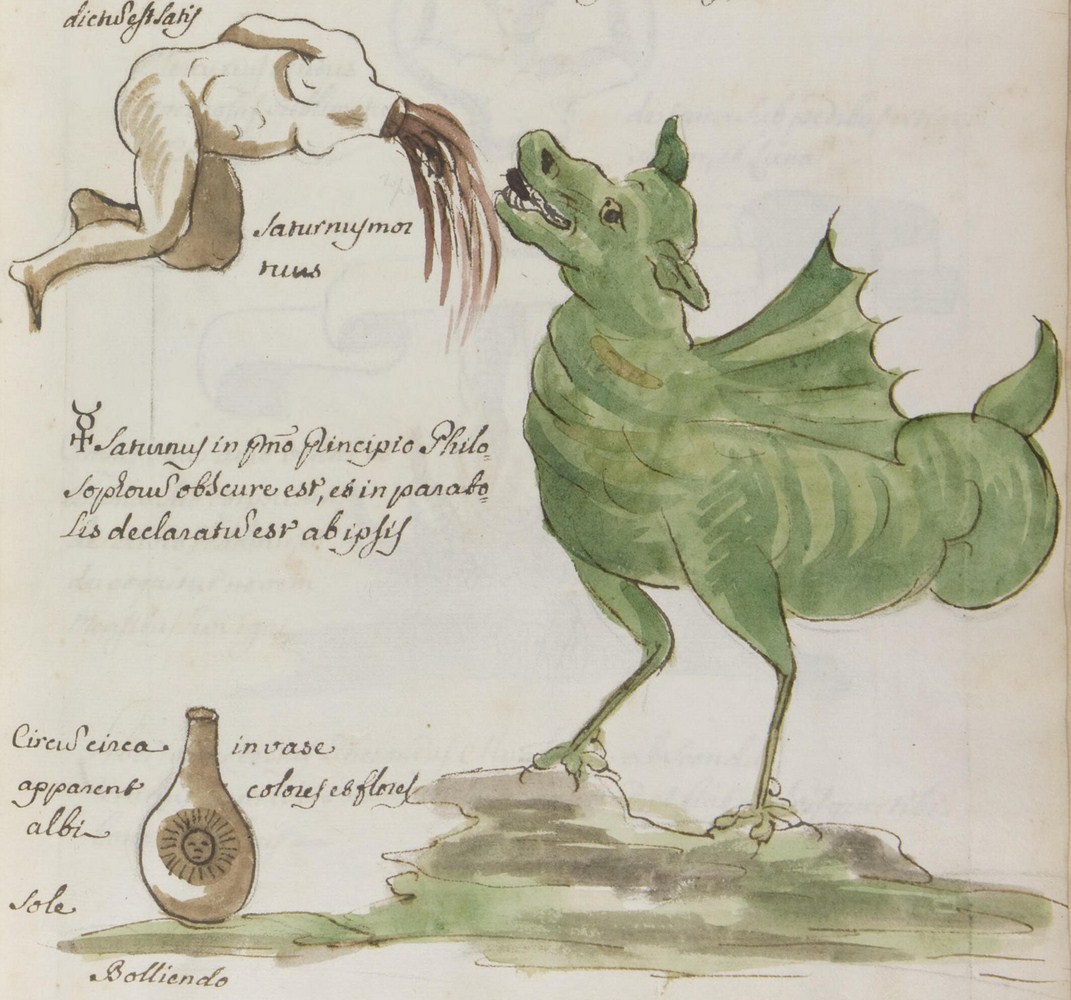 dictũ est satis
Saturnus mor
tuus
Saturnus in pmõ principio Philo=
sophoũ obscure est, et in parabo=
lis declaratũ est ab ipsis
Circũ circa in vase
apparent colores et flores
albi
Sole
Bolliendo